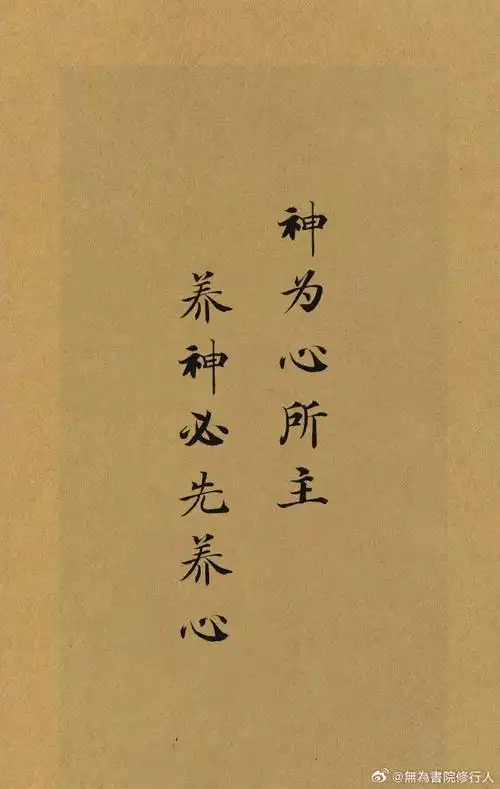 神为心所主
养神必先养心
@無為書院修行人